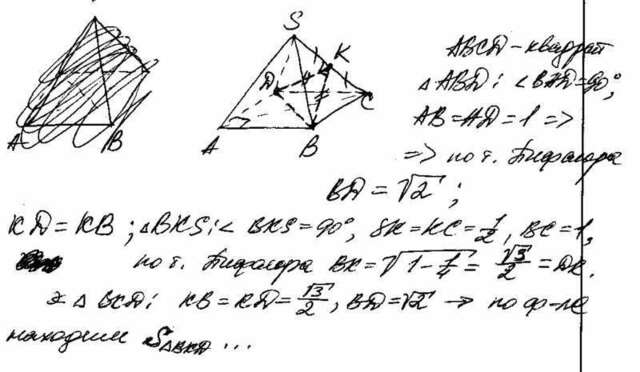 A B
S
K
D
C
A
B
ABCD - квадрат
△ABD: ∠BAD=90°,
AB=AD=1 =>
=> по т. Пифагора
BD=√2;
KD=KB; △BKS: ∠BKS=90°, SK=KC=1/2, BC=1,
по т. Пифагора BK=√(1-1/4)=√3/2=DK.
△BKD: KB=KD=√3/2, BD=√2 → по ф-ле
находим S△BKD ...